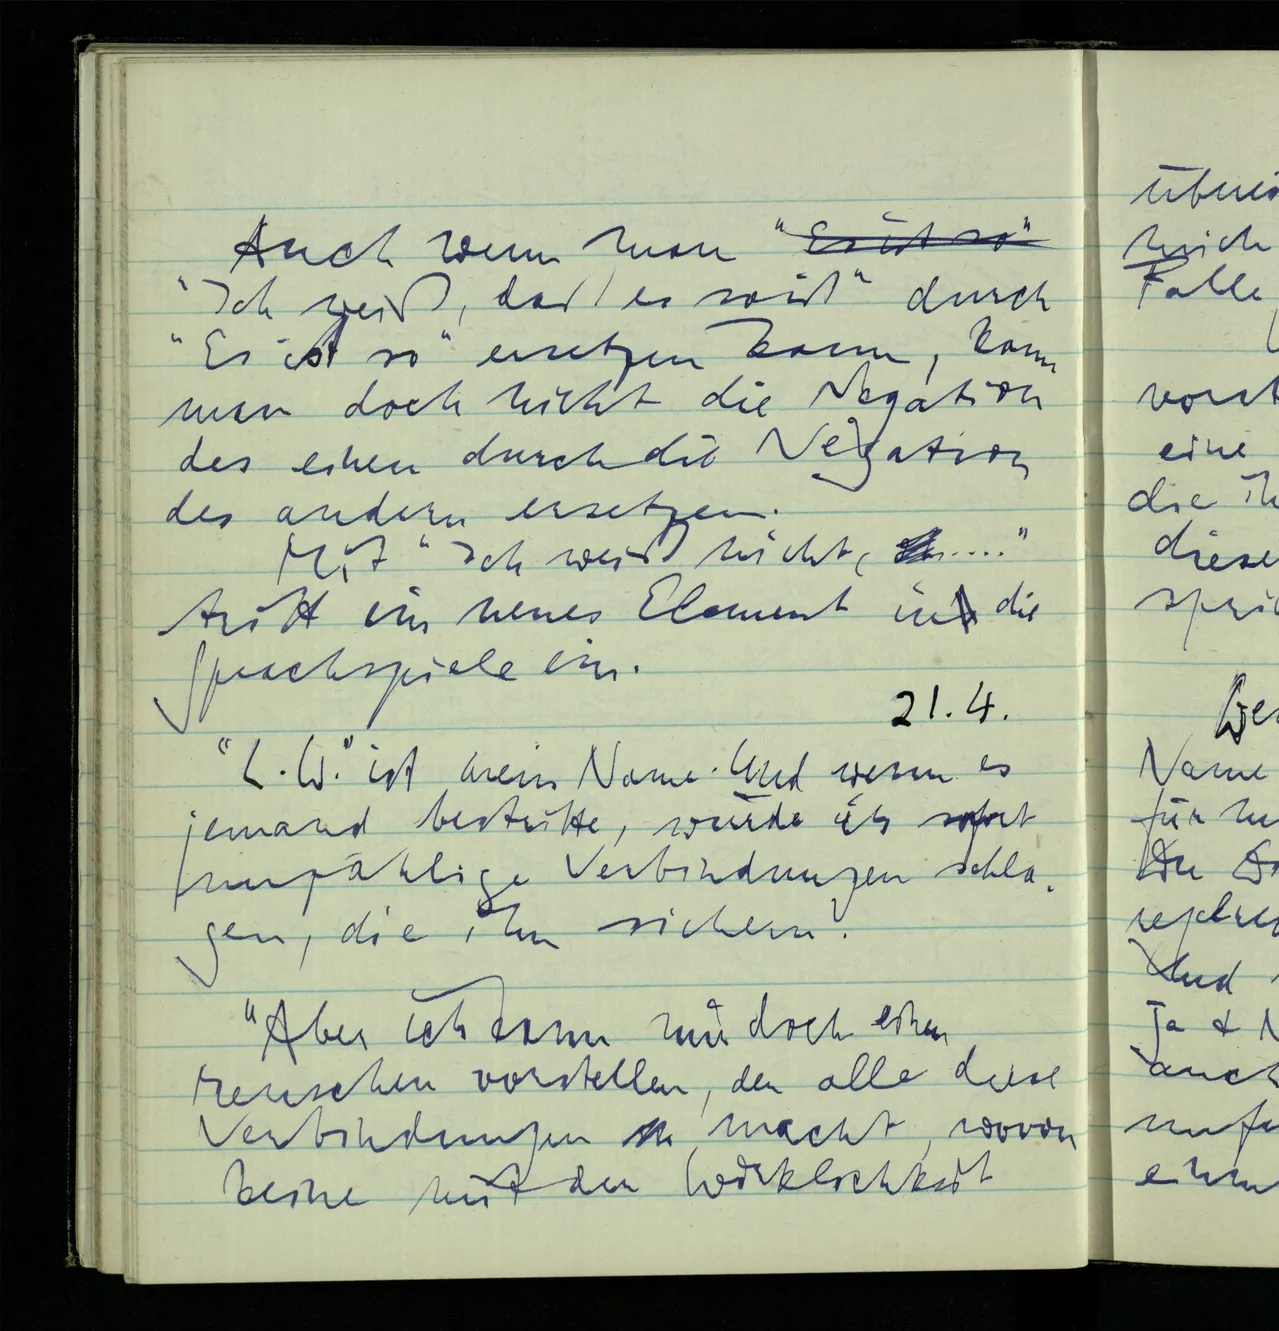 Auch wenn man "Es ist so"
"Ich weiß, daß es so ist" durch
"Es ist so" ersetzen kann, kann
man doch nicht die Negation
des einen durch die Negation
des andern ersetzen.
Mit "Ich weiß nicht, ...."
tritt ein neues Element in die
Sprachspiele ein.
21.4.
"L.W." ist mein Name. Und wenn es
jemand bestritte, würde ich sofort
unzählige Verbindungen schla-
gen, die ihn sichern.
"Aber ich kann mir doch einen
Menschen vorstellen, der alle diese
Verbindungen macht, wovon
keine mit der Wirklichkeit
mich
Falle
vorst
eine
die ih
diese
Name
für
Und
Ja & N
auch